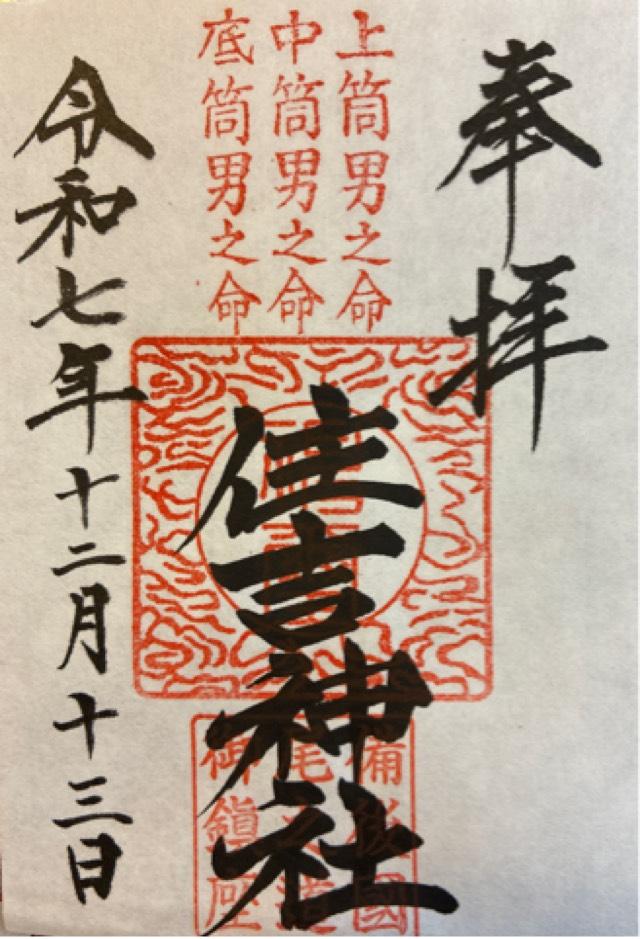 奉拝
上筒男之命
中筒男之命
底筒男之命
住吉神社
備後國
尾之道
御鎮座
令和七年十二月十三日